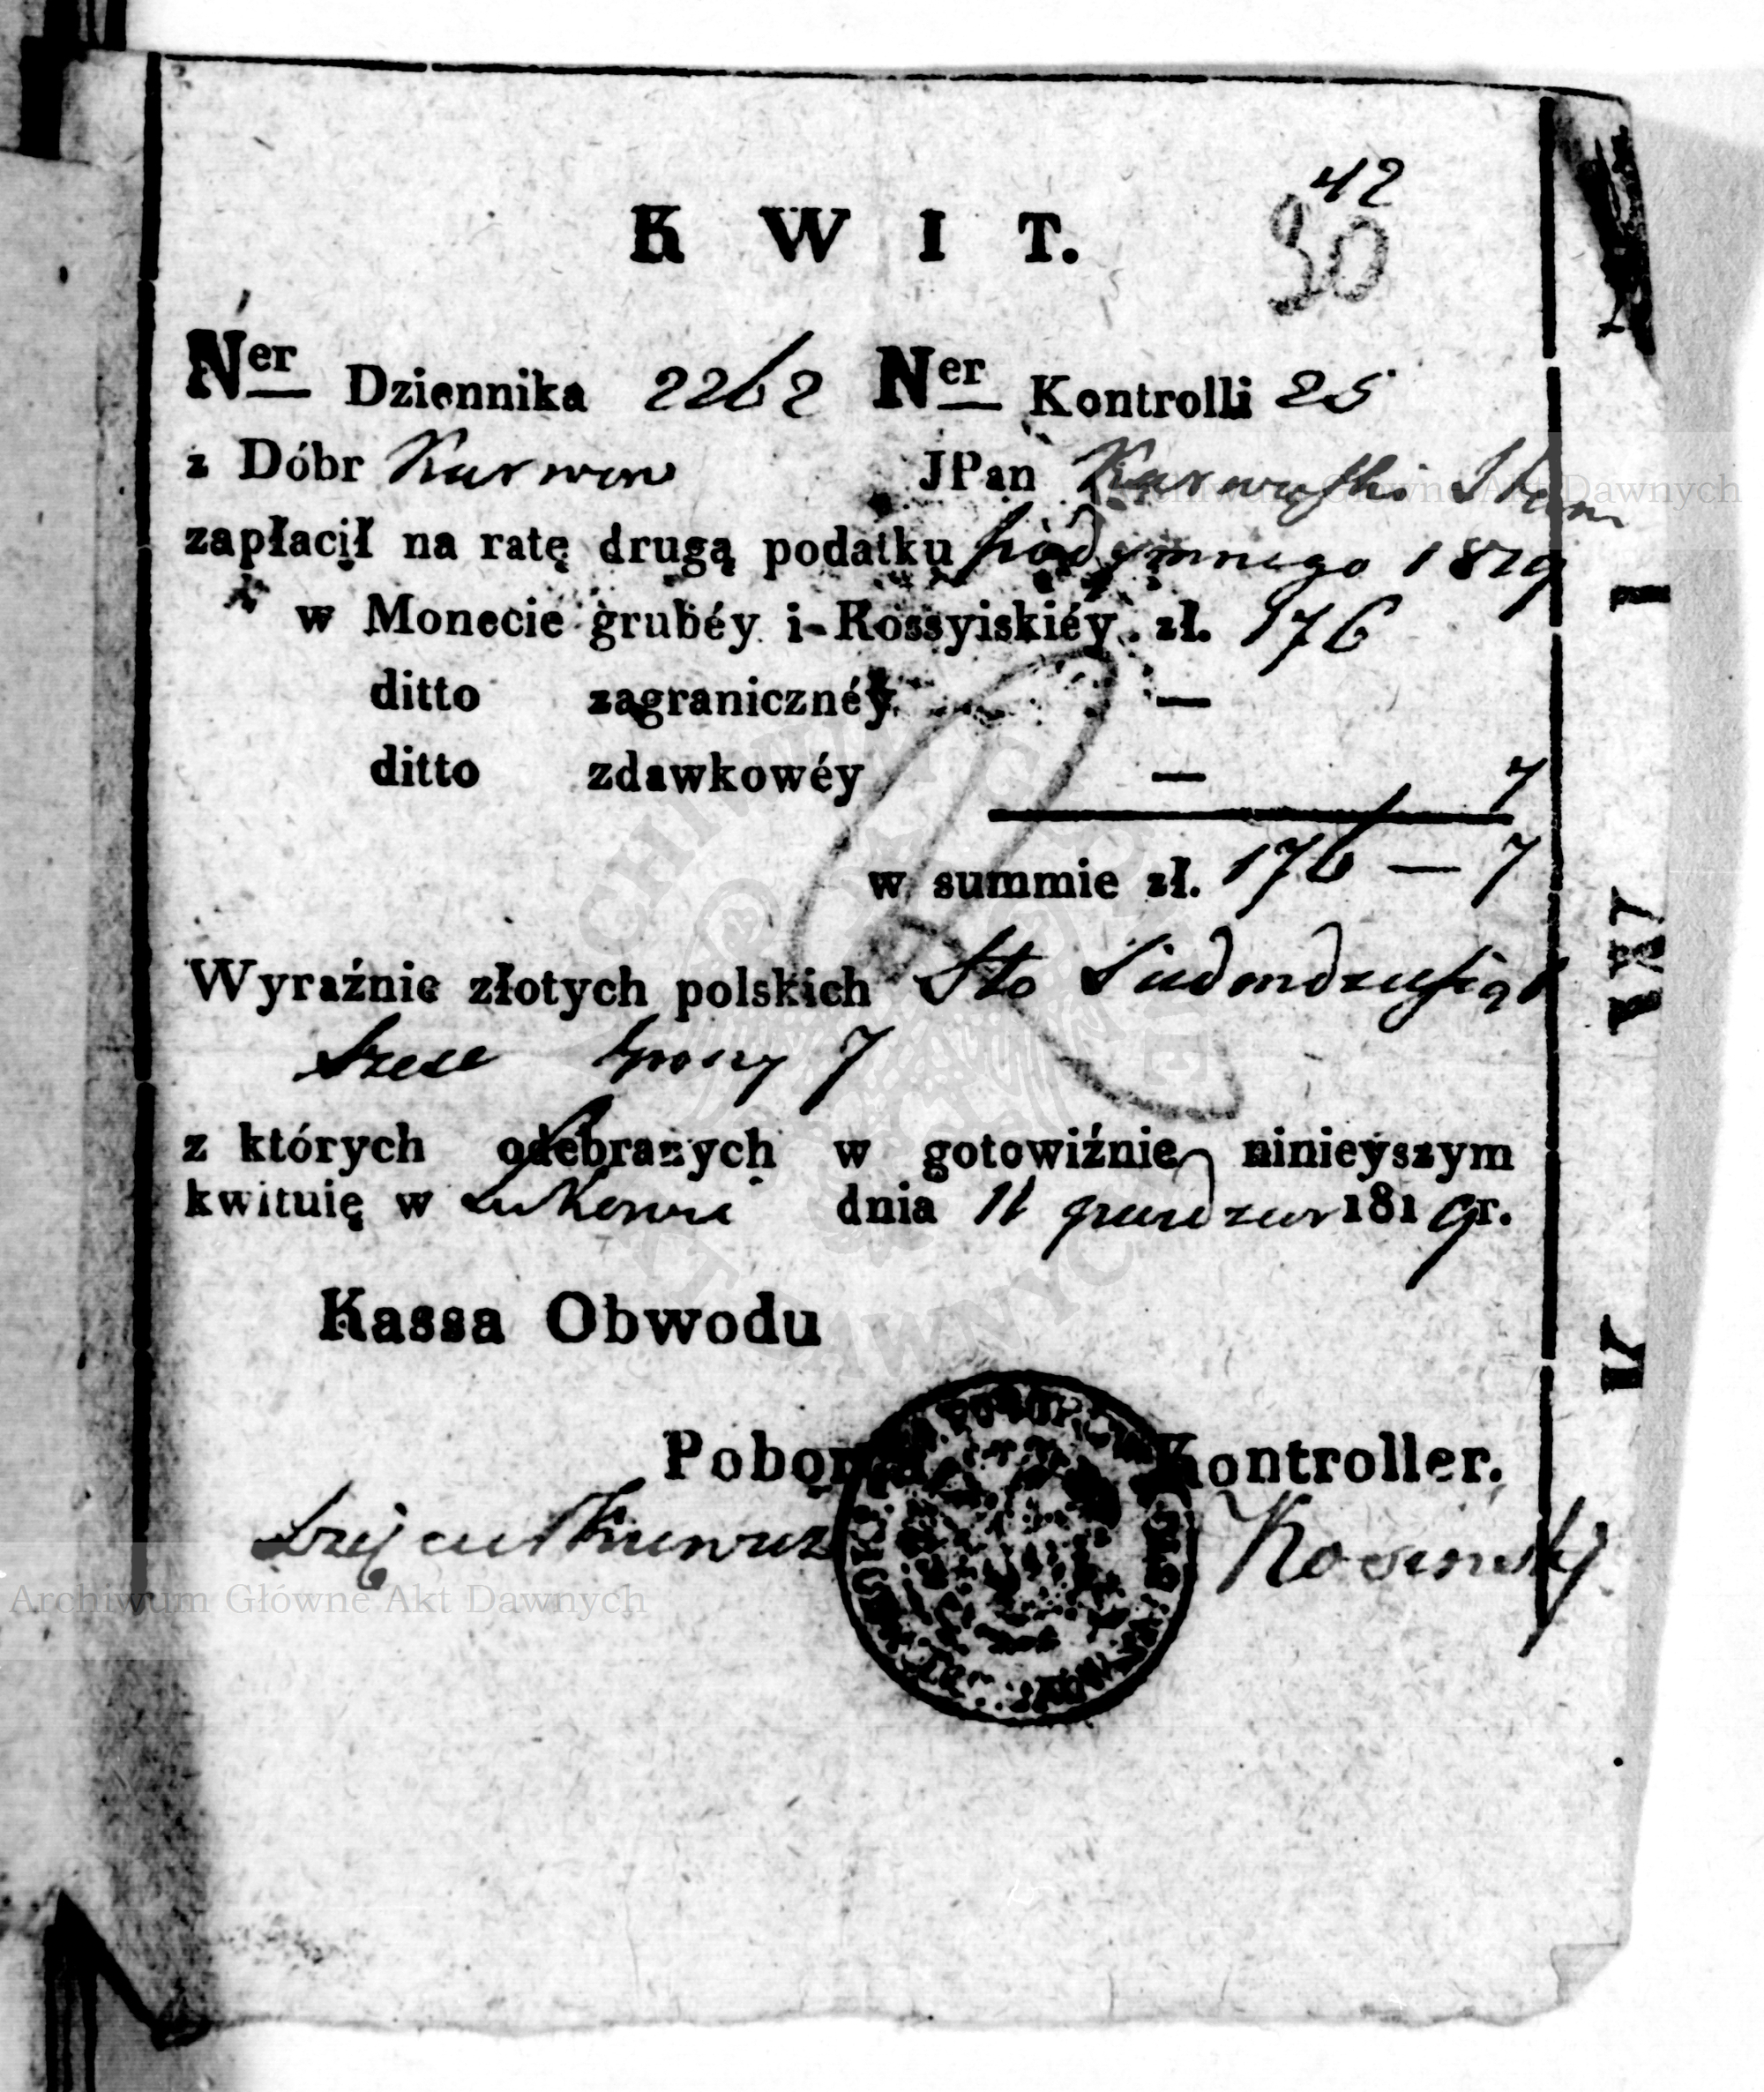 42
30
K W I T.
Ner Dziennika 2262 Ner Kontrolli 25
z Dóbr Karwow JPan Karwoski
zapłacił na ratę drugą podatku podymnego 1819
w Monecie grubéy i Rossyiskiéy zł. 176
ditto zagranicznéy —
ditto zdawkowéy — 7
w summie zł. 176 — 7
Wyraźnie złotych polskich Sto Siedmdziesiąt
Szesc groszy 7
z których odebranych w gotowiźnie ninieyszym
kwituię w Łukowie dnia 11 grudnia 1819 r.
Kassa Obwodu
Poborca Kontroller.
Kosinski
K W I
Archiwum Główne Akt Dawnych